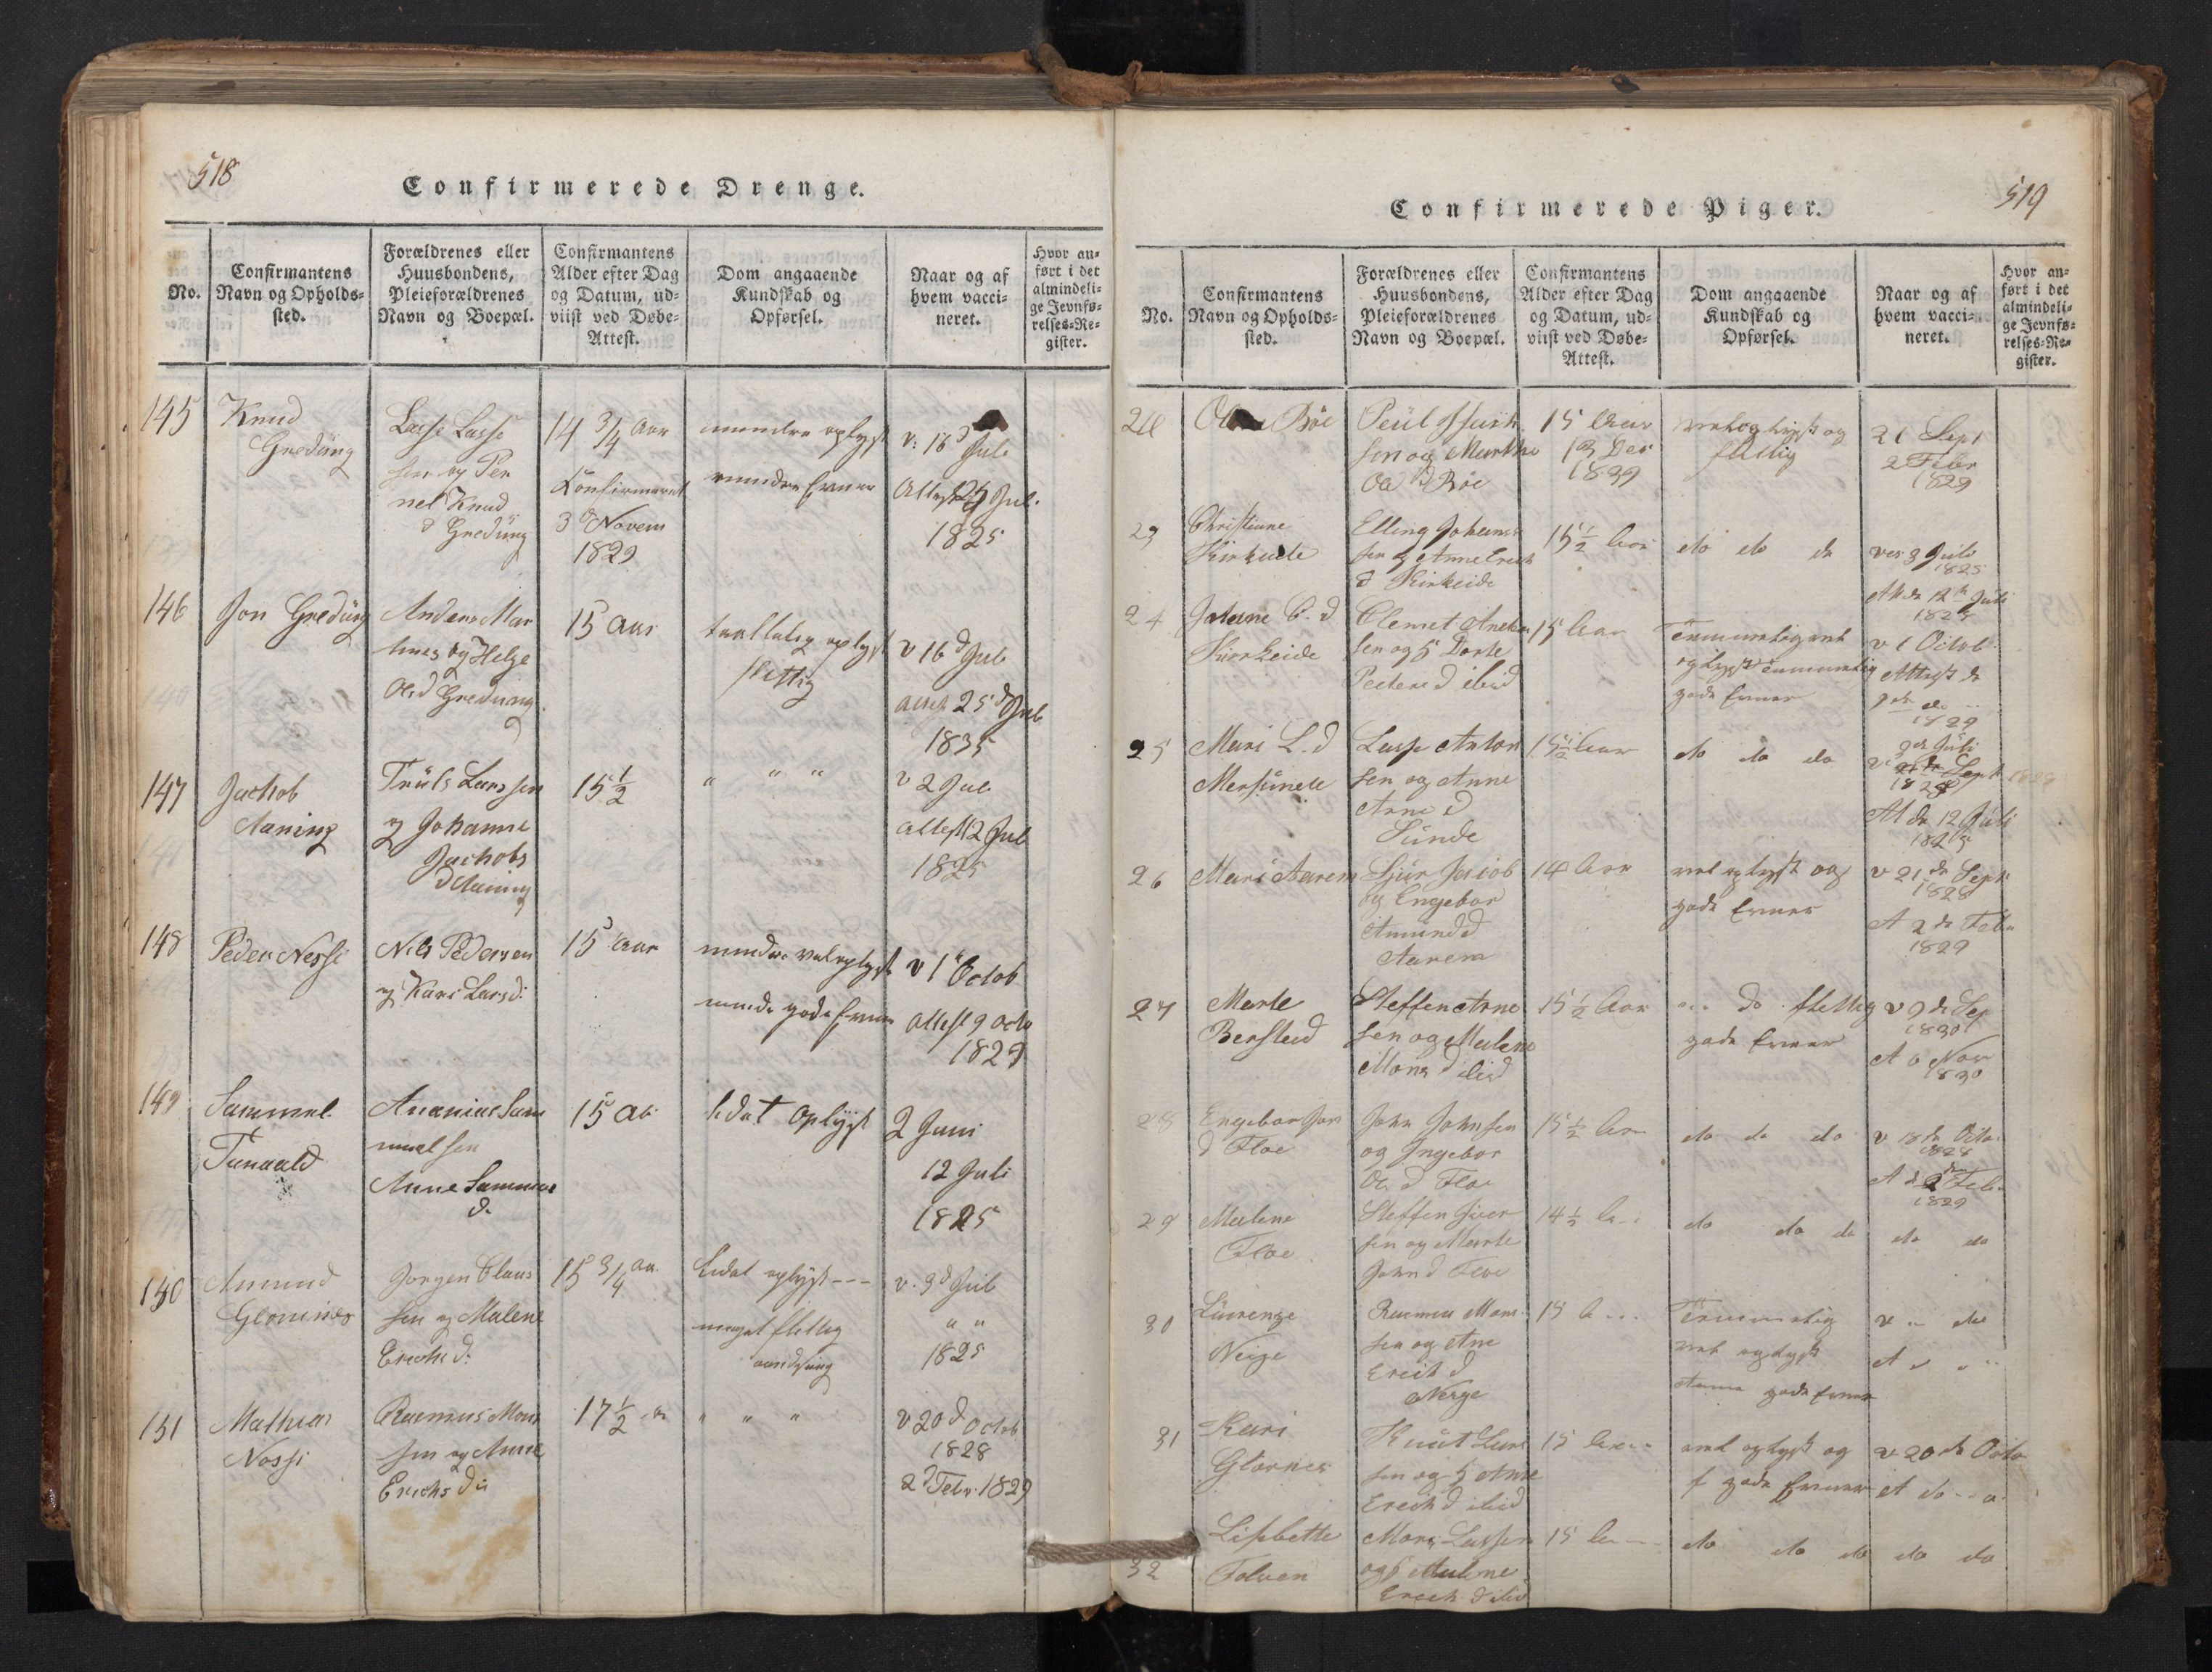 518
Confirmerede Drenge.
No.
Confirmantens
Navn og Opholds-
sted.
Forældrenes eller
Huusbondens,
Pleieforældrenes
Navn og Boepæl.
Confirmantens
Alder efter Dag
og Datum, ud-
viist ved Døbe-
Attest.
Dom angaaende
Kundskab og
Opførsel.
Naar og af
hvem vacci-
neret.
Hvor an-
ført i det
almindeli-
ge Jevnfø-
relses-Re-
gister.
145
Knud
Gredüng
Lasse Lasse
sen og Per
nel Knud
d Gredüng
14 3/4 Aar
Confirmeret
3 d Novem
1829
mindre oplyst
mindre Evner
v: 16 d Jul
Attest 24 Jul.
1825
146
Jon Gredüng
Anders Mar
og Helge
Ols d Gredung
15 Aar
taalelig oplyst
flittig
v 16 d Jul
attest 25 d Jul
1835
147
Jachob
Aaning
Trüls Larssen
og Johanne
Jachobs
d Aaning
15 1/2
" " "
v 2 Jul
attest 12 Jul
1825
148
Peder Nesse
Nils Pedersen
og Kari Lars d:
15 Aar
mindre vel oplyst
minde gode Evner
v 1 Octob
attest 9 Octo
1829
149
Sammel
Ananias Sam
muel sen
Anne Sammue
d.
15 Aa
lidet oplyst
2 Juni
12 Juli
1825
150
Amund
Glomnes
Jorgen Claus
sen og Malene
Erichs d:
15 3/4 Aa.
Lidet oplyst ---
meget flittig
v. 3 d Jul
" "
1825
151
Mathias
Nossi
Rasmus Mons
sen og Anne
Erichs d:
17 1/2
" " "
v 20 d Octob
1828
2 d Febr. 1829
519
Confirmerede Piger.
No.
Confirmantens
Navn og Opholds-
sted.
Forældrenes eller
Huusbondens,
Pleieforældrenes
Navn og Boepæl.
Confirmantens
Alder efter Dag
og Datum, ud-
viist ved Døbe-
Attest.
Dom angaaende
Kundskab og
Opførsel.
Naar og af
hvem vacci-
neret.
Hvor an-
ført i det
almindeli-
ge Jevnfø-
relses-Re-
gister.
Böe
sen og Marthe
Ole d Böe
15 Aar
13 Des
vel oplyst og
flittig
21 Sept
2 Febr
1829
23
Christiane
Kirkeide
Elling Johans
sen og Anne Erich
d Kirkeide
15 1/2 Aar
do do do
1825
At d 12 te Juli
1825
24
Johane C. d
Kirkeide
Clemet Andr
sen og Dorte
Peders d ibid
15 Aar
Temmelig vel
oplyst Temmelig
gode Evner
v 1 Octob
Attest d
9 de do
1829
25
Mari L. d
Lasse Anton
sen og Anne
Arne d
Sünde
15 1/2 Aar
do do do
9 de Juli
At de 12 Juli
1825
26
Mari Aarem
Sjür Jacob
og Engebor
Amund d
Aarem
14 Aar
vel oplyst og
gode Evner
v 21 de Sept
1828
A 2 de Feb
1829
27
Marte
Berstad
Steffen Arne
sen og Malene
Mons d ibid
15 1/2 Aar
do flittig
gode Evner
v 9 d Sep
1830
A 6 Nov
1830
28
Engebor Jon
d Floe
John Johnsen
og Ingebor
Ol d Floe
15 1/2 Aar
do do do
v 18 de Octo
1828
1829
29
Malene
Floe
Steffen Siver
sen og Marte
John d Floe
14 1/2 Aa
do do do
do do
30
Laurenze
Neige
Rasmus Mons
sen og Ane
Erick d
Nerge
15 A...
Temmelig
vel oplyst
gode Evner
31
Kari
Glornes
Knüt Lars
sen og Anne
Erick d ibid
15 Aar
vel oplyst og
gode Evner
v 20 de Octo
32
Lisbette
Folven
Mons Lassen
og Malene
Erick d ibid
15 Aa
do do do
do do